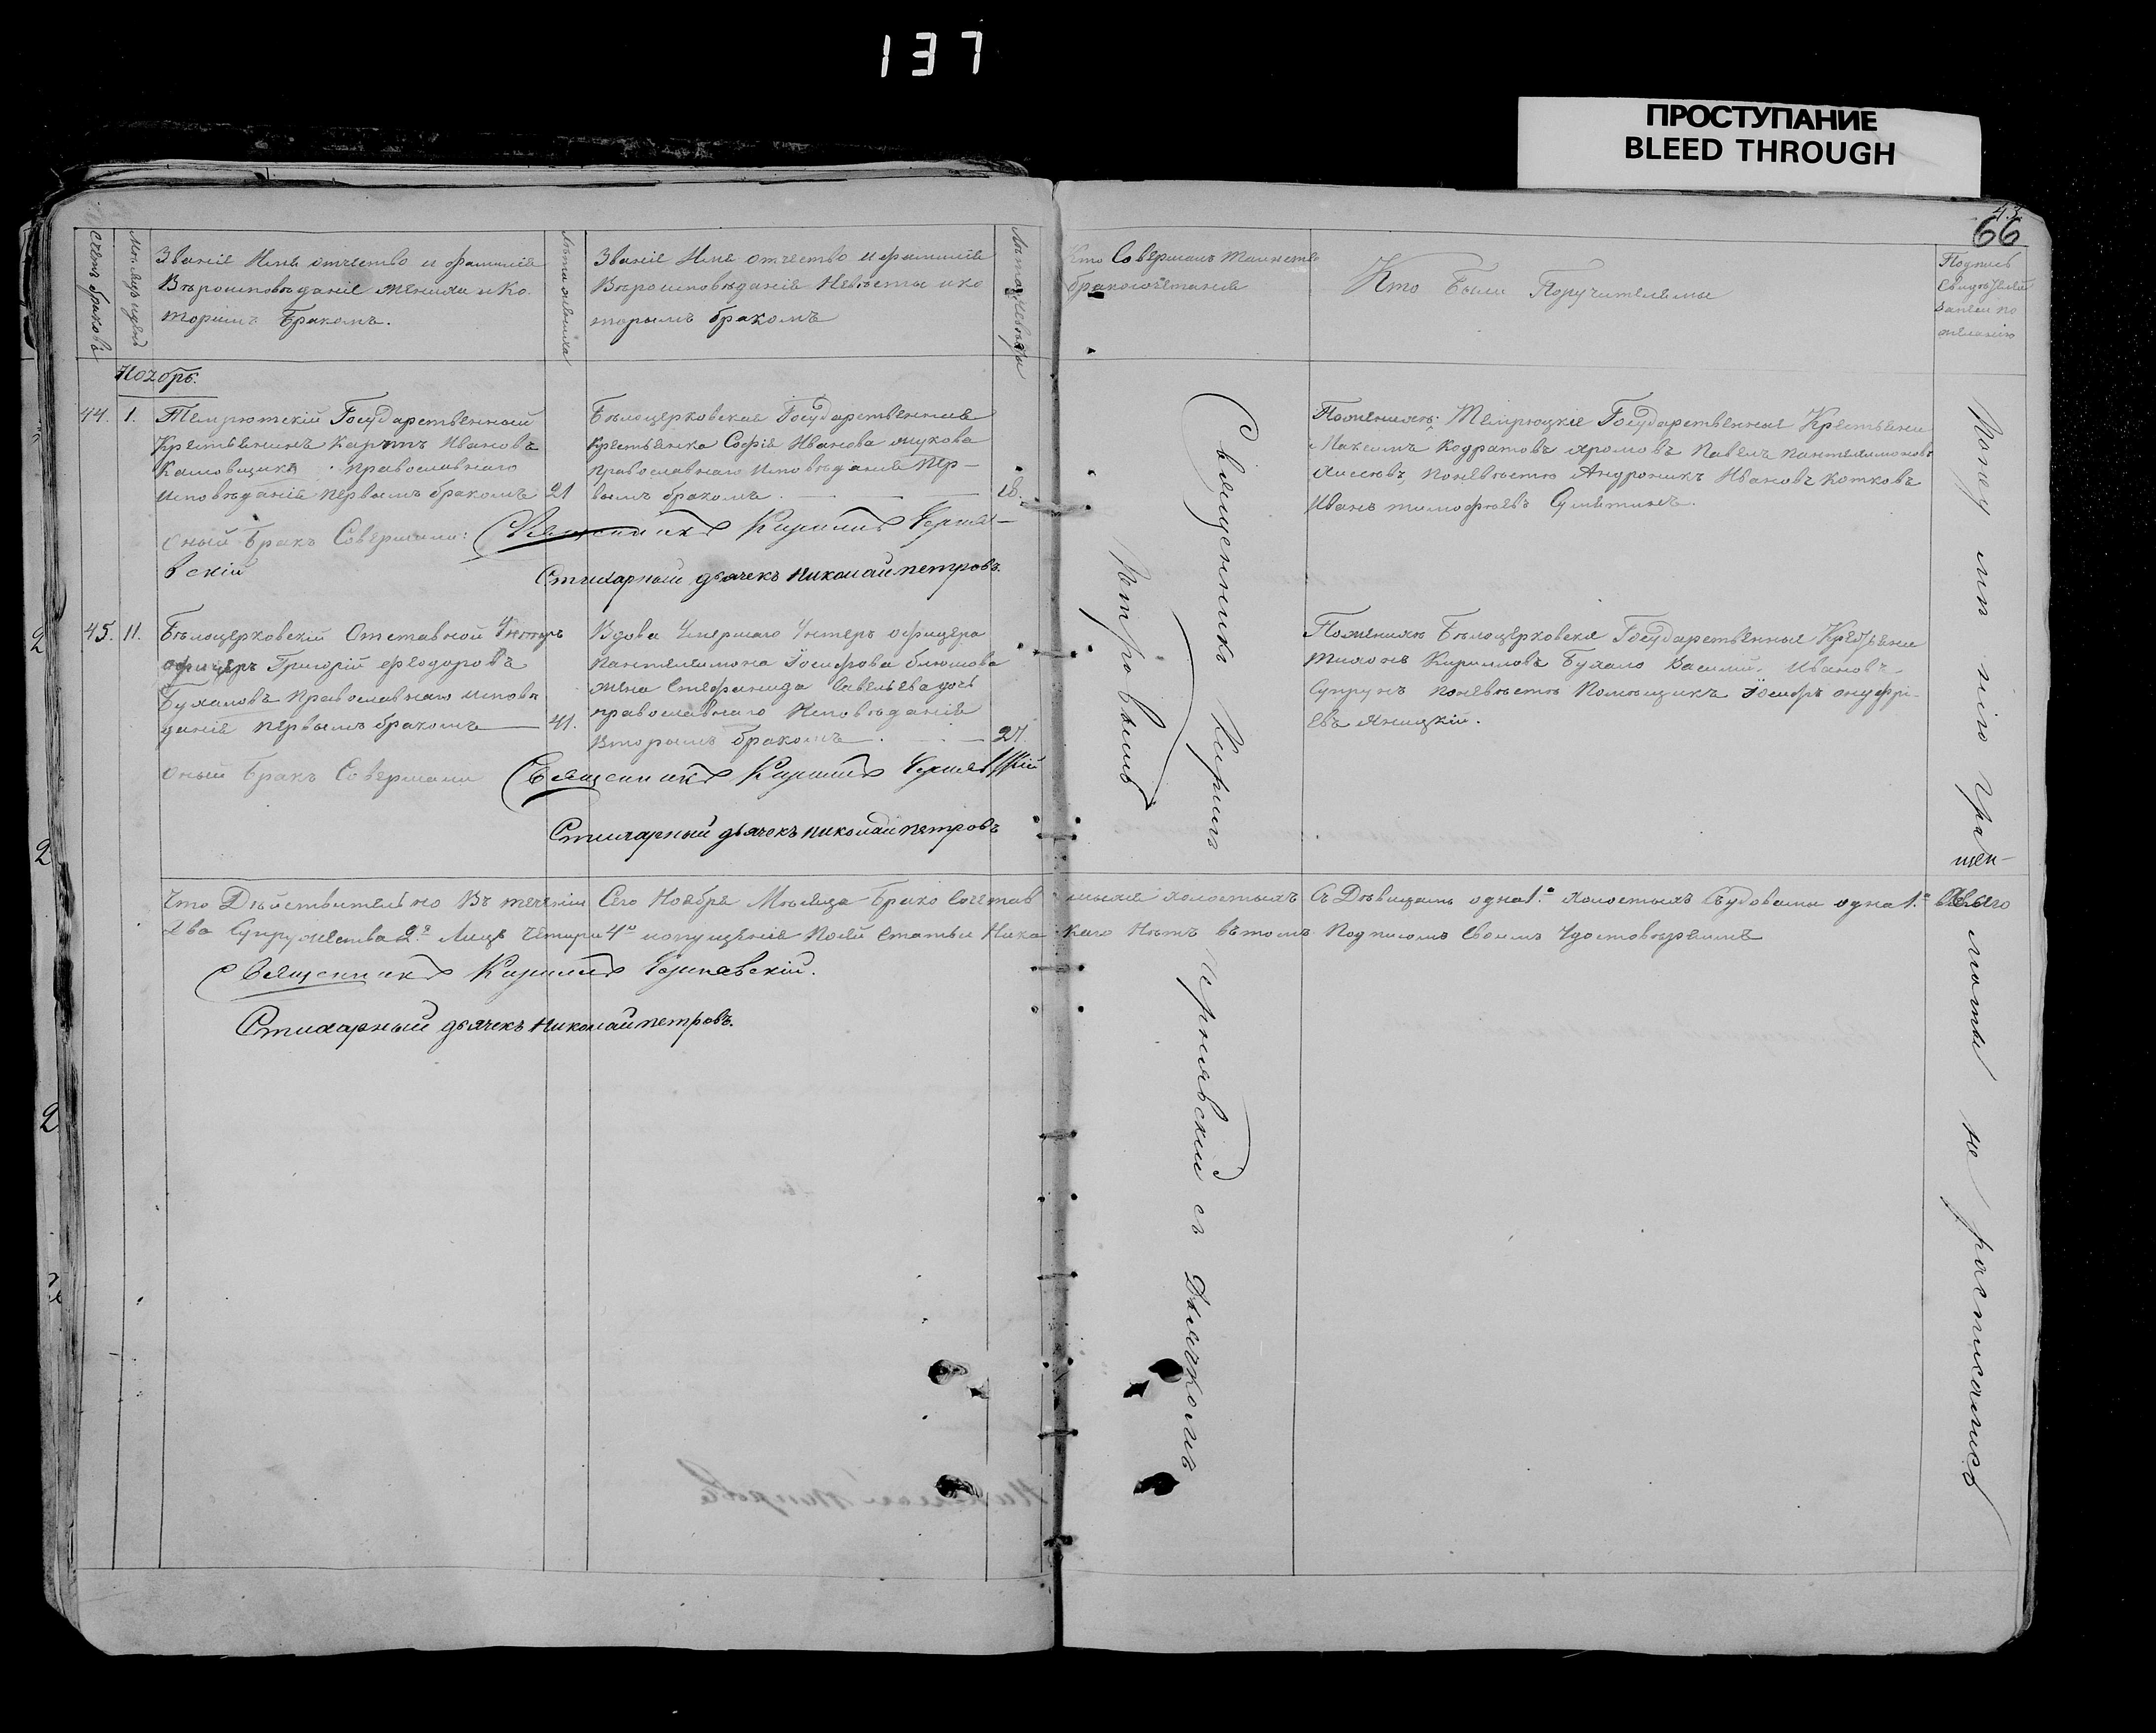 137
ПРОСТУПАНИЕ
BLEED THROUGH
43
66
Счетъ браковъ
Месяцъ и день
Званіе Имя отчество и фамилія
Вѣроисповѣданіе жениха и ко
торымъ бракомъ.
Лѣта жениха
Званіе Имя отчество и фамилія
Вѣроисповѣданіе Невѣсты и ко
торымъ бракомъ
Лѣта невѣсты
Кто Совершалъ Таинство
бракосочетанія
Кто Были Поручителями
Подпись
Свидѣтелей
записи по
желанію
Ноябрь.
44. 1.
Темрютскій Государственный
Крестьянинъ Карпъ Ивановъ
православнаго
исповѣданія первымъ бракомъ 21
Бѣлоцерковская Государственная
Крестьянка Софія Иванова
православнаго исповѣданія пер-
вымъ бракомъ 18.
Поженихѣ: Темрюцкіе Государственные Крестьяне
Максимъ Кодратовъ Хромовъ Павелъ Пантелимоновъ
поневѣстѣ Андроникъ Ивановъ Котковъ
Иванъ Тимофѣевъ
оный Бракъ Совершали: Священникъ Кирилъ Черняв-
вскій
Стихарный дьячекъ Николай Петровъ.
45. 11.
Бѣлоцерковскій Отставной Унтеръ
офицеръ Григорій Феодоровъ
Бухаловъ Православнаго исповѣ
данія первымъ бракомъ 41.
Вдова Умершаго Унтеръ офицера
Пантелимона Іосифова
жена Стефанида Савельева дочь
православнаго Исповѣданія
Вторымъ бракомъ 27.
Поженихѣ Бѣлоцерковскіе Государственные Крестьяне
Тихонъ Кирилловъ Бухало Василій Ивановъ
Супрунъ поневѣстѣ Помѣщикъ Іосифъ Онуфрі-
евъ Яницкій.
оный Бракъ Совершали Священникъ Кирилъ Чернявскій
Стихарный дьячекъ Николай Петровъ
Священникъ Кирилъ Чернявскій съ Дьячкомъ
Петровымъ
грамоты не росписались
Что Дѣйствительно Въ теченіи Сего Ноября Мѣсяца Бракосочетав шихся холостыхъ Съ Дѣвицами одна 1. холостыхъ Съ вдовами одна 1. Всего
Два Супружества 2. Лицъ Четыри 4 и опущенія По сей Статьи Ника каго Нѣтъ въ томъ Подписомъ Своимъ Удостовѣряемъ
Священникъ Кирилъ Чернявскій.
Стихарный дьячекъ Николай Петровъ.